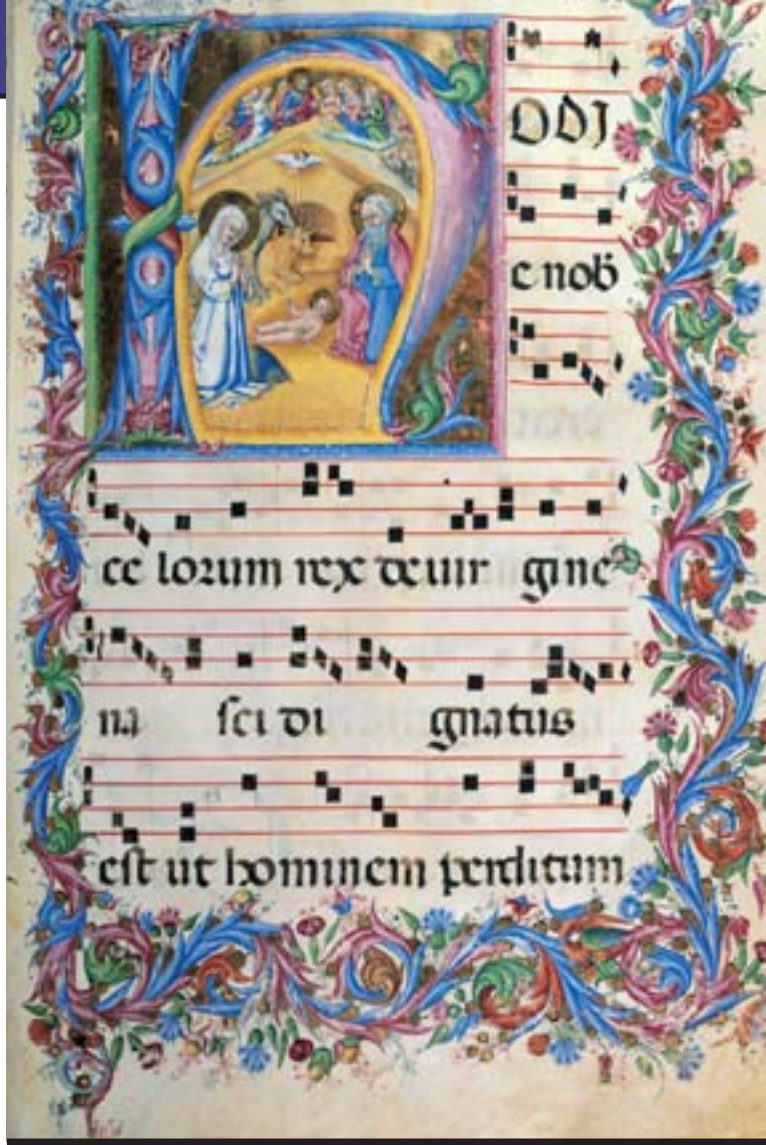 HODJ
e nob̄
ce lorum rex de uir gine
na sci di gnatus
est ut hominem perditum